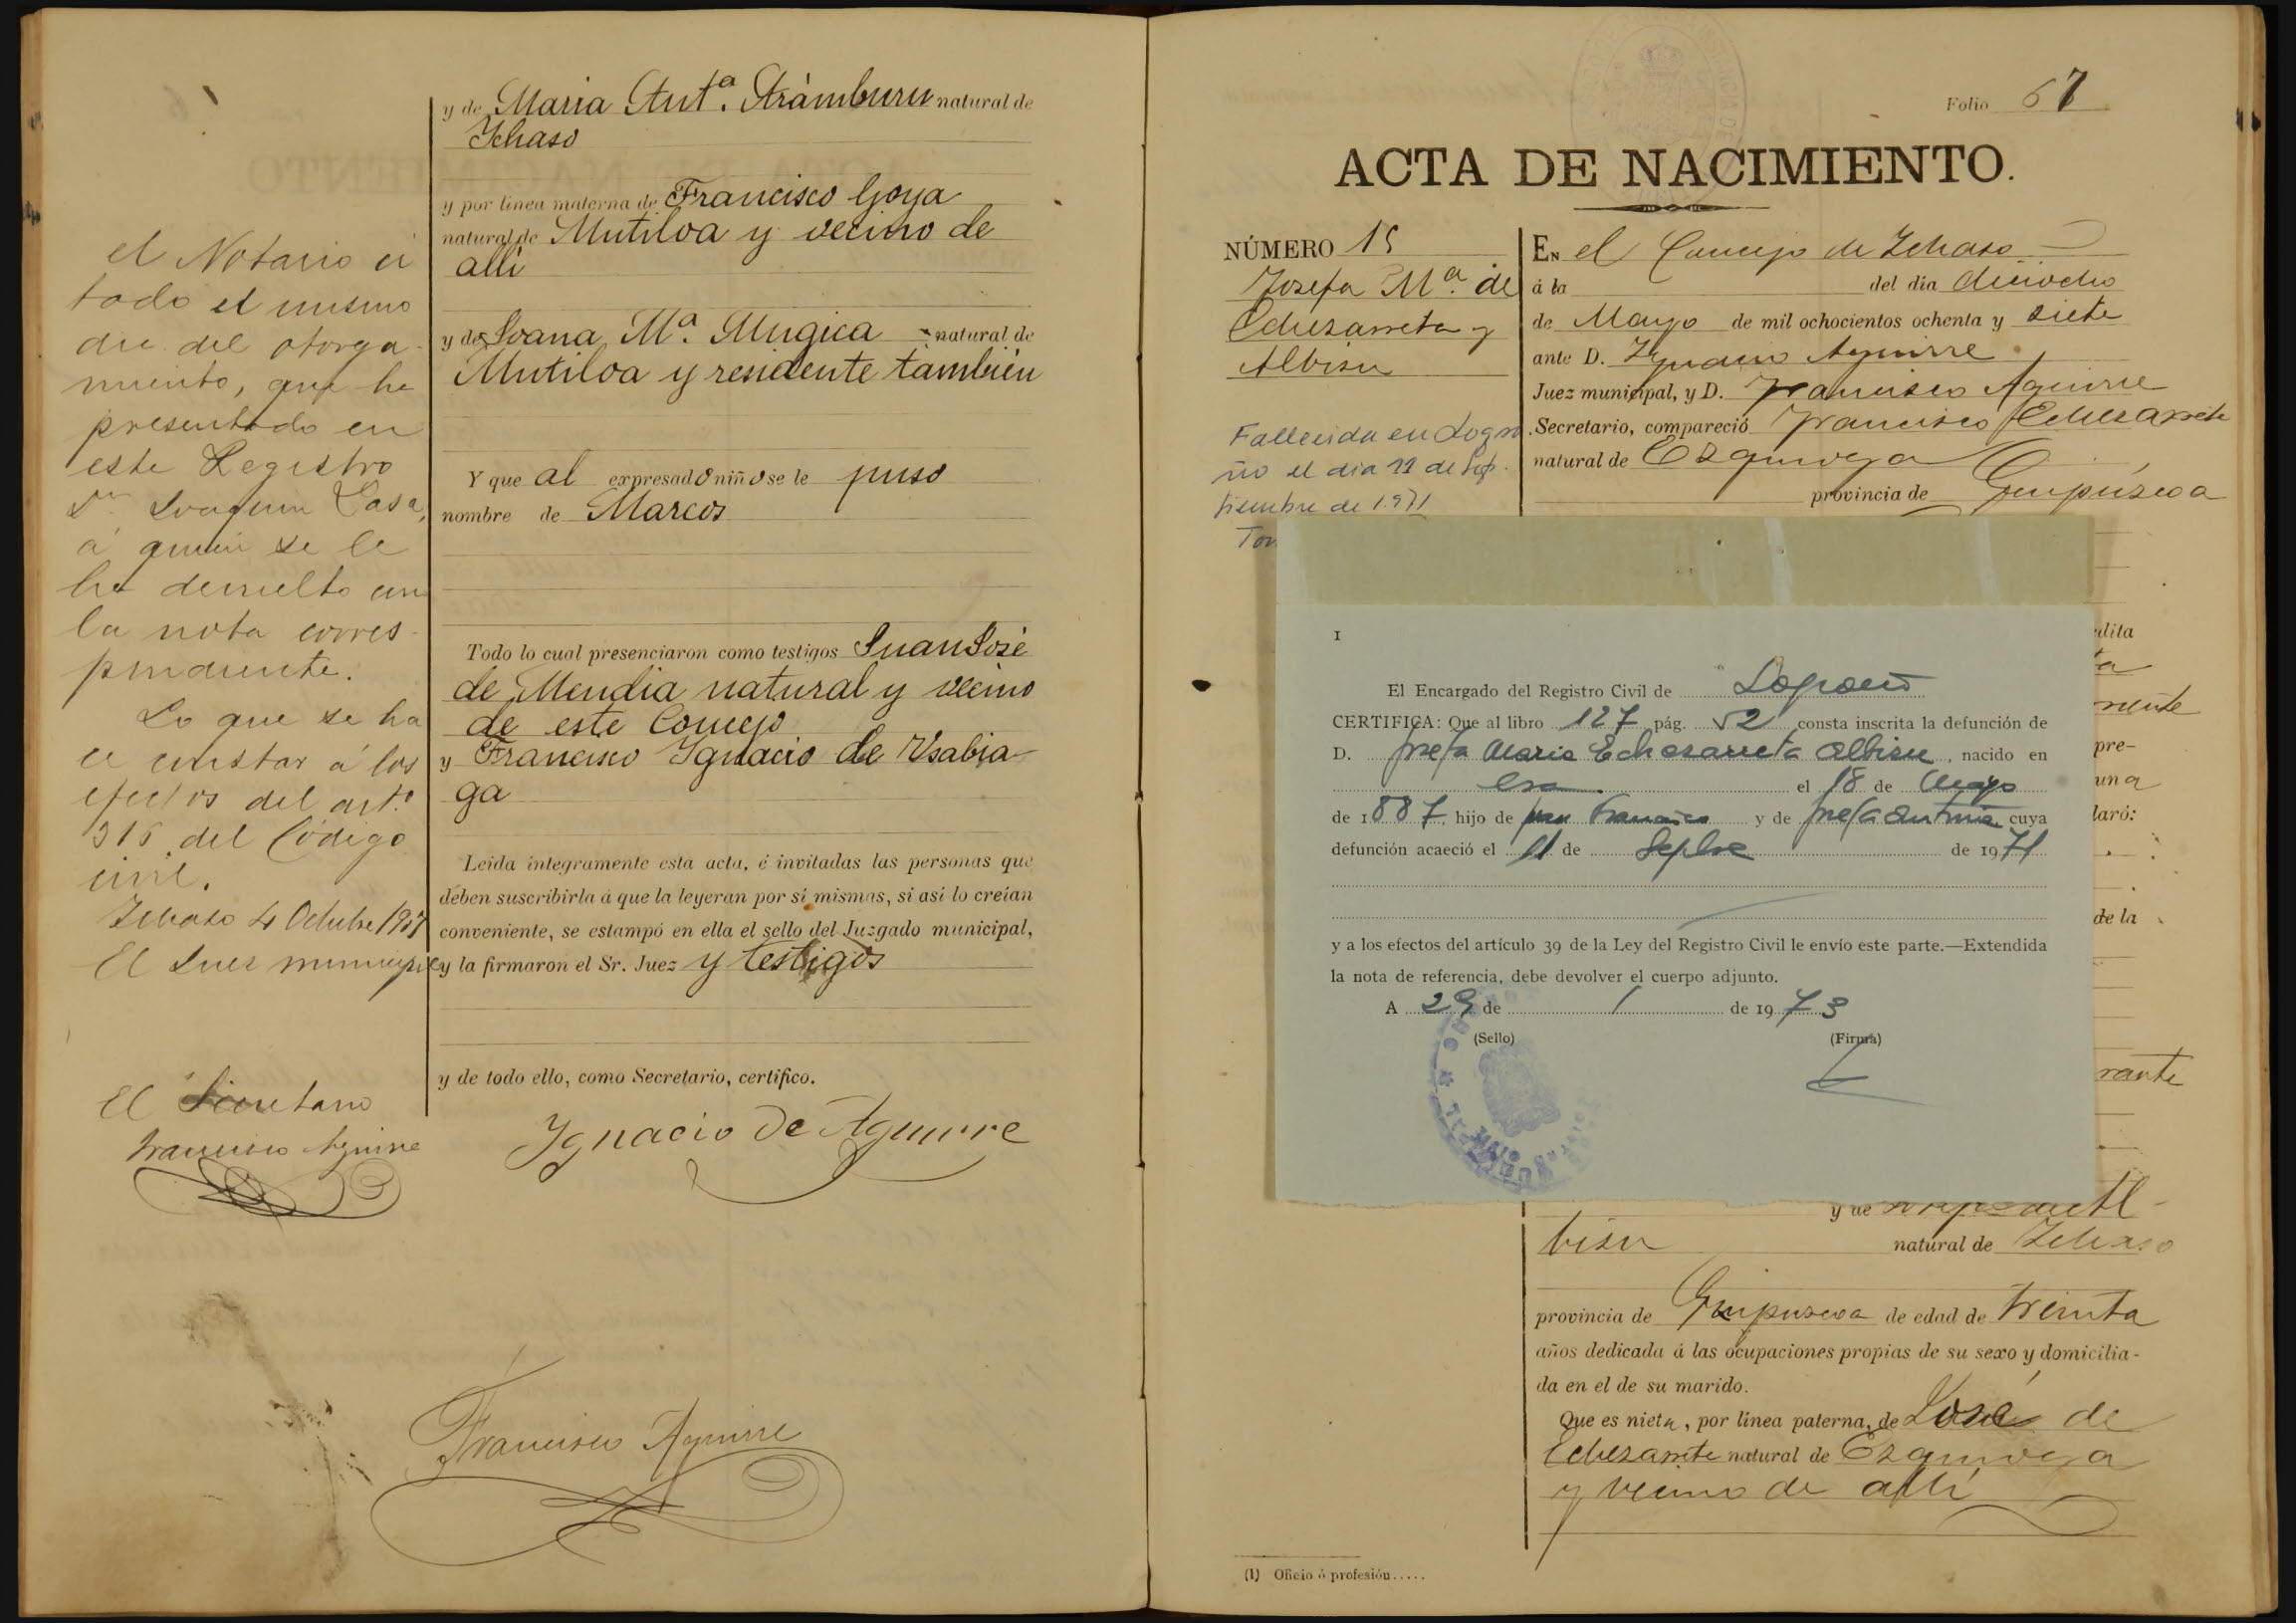 y de Maria Antª. Arámburu natural de
Ichaso
y por línea materna de Francisco Goya
natural de Mutiloa y vecino de
alli
y de Joana Mª. Mugica natural de
Mutiloa y residente también
Y que al expresado niño se le puso
nombre de Marcos
Todo lo cual presenciaron como testigos Juan José
de Mendia natural y vecino
de este Concejo
y Francisco Ignacio de Usabia-
ga
Leida íntegramente esta acta, é invitadas las personas que
deben suscribirla á que la leyeran por sí mismas, si así lo creían
conveniente, se estampó en ella el sello del Juzgado municipal,
y la firmaron el Sr. Juez y testigos
y de todo ello, como Secretario, certifico.
Ignacio de Aguirre
Francisco Aguirre
el Notario ci
tado el mismo
dia del otorga-
miento, que ha
presentado en
este Registro
Dn Joaquin Casa,
á quien se le
ha devuelto con
la nota corres-
pondiente.
Lo que se ha
ce constar á los
efectos del art.º
316 del Código
civil.
Ichaso 4 Octubre
El Juez municipal
El Secretario
Francisco Aguirre
Folio 67
ACTA DE NACIMIENTO.
NÚMERO 15
Josefa Mª. de
Echezarreta y
Albisu
Fallecida en Logro
ño el dia 11 de Sep
tiembre de 1.971
Tom
En el Concejo de Ichaso
á la del dia dieciocho
de Mayo de mil ochocientos ochenta y siete
ante D. Ygnacio Aguirre
Juez municipal, y D. Francisco Aguirre
Secretario, compareció Francisco Echezarreta
natural de Ezquioga
provincia de Guipúzcoa
I
El Encargado del Registro Civil de Logroño
CERTIFICA: Que al libro 127 pág. 52 consta inscrita la defunción de
D. Josefa Maria Echezarreta Albisu, nacido en
esa el 18 de Mayo
de 1887, hijo de Francisco y de Josefa Antonia cuya
defunción acaeció el 11 de Sepbre de 1971
y a los efectos del artículo 39 de la Ley del Registro Civil le envío este parte.—Extendida
la nota de referencia, debe devolver el cuerpo adjunto.
A 29 de 1 de 1973
(Sello) (Firma)
dita
ta
mente
pre-
una
laró:
de la
rante
y de
bisu natural de Ichaso
provincia de Guipuzcoa de edad de treinta
años dedicada á las ocupaciones propias de su sexo y domicilia-
da en el de su marido.
Que es nieta, por línea paterna, de José de
Echezarreta natural de Ezquioga
y vecino de alli
(1) Oficio ó profesión.....